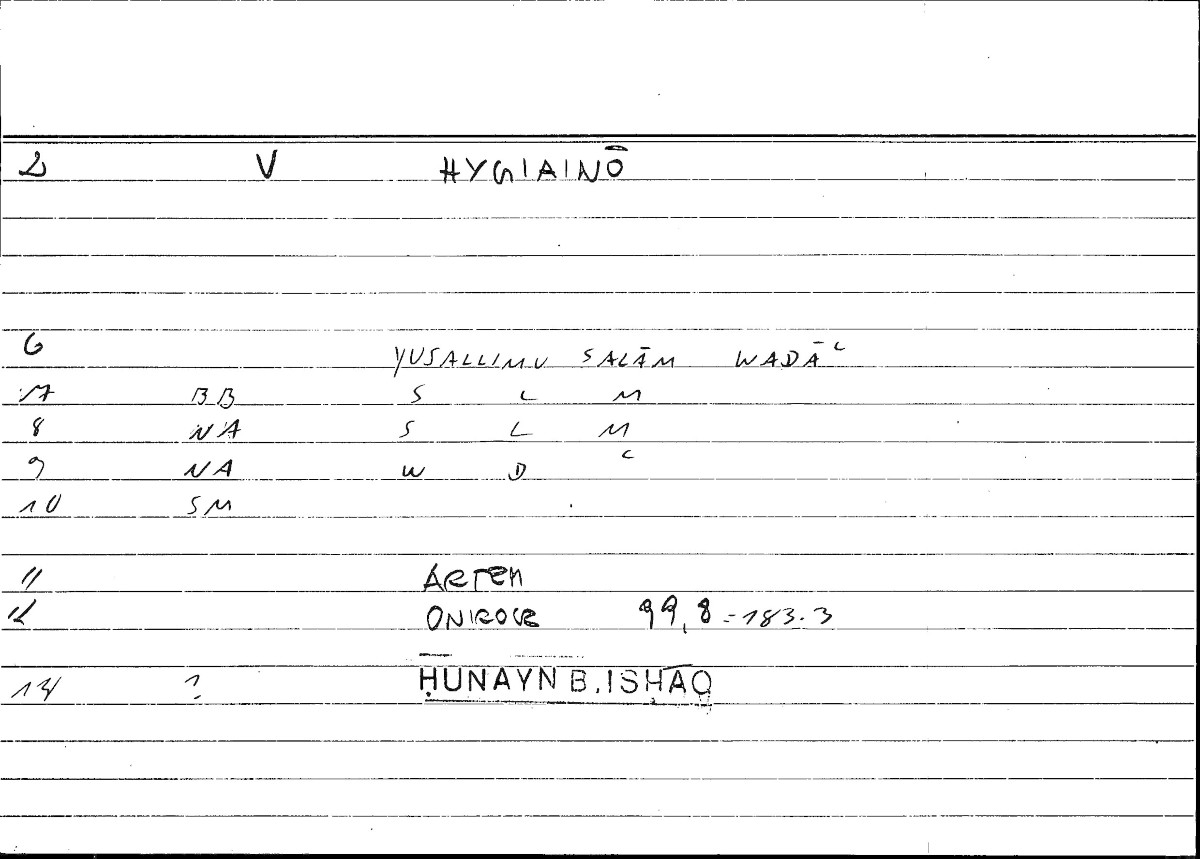 2 V HYGIAINŌ
6 YUSALLIMU SALĀM WADĀʿ
7 BB S L M
8 NA S L M
9 NA W D ʿ
10 SM
11 ARTEM
12 ONIROCR 99,8 = 183.3
13 ? ḤUNAYN B. ISḤĀQ